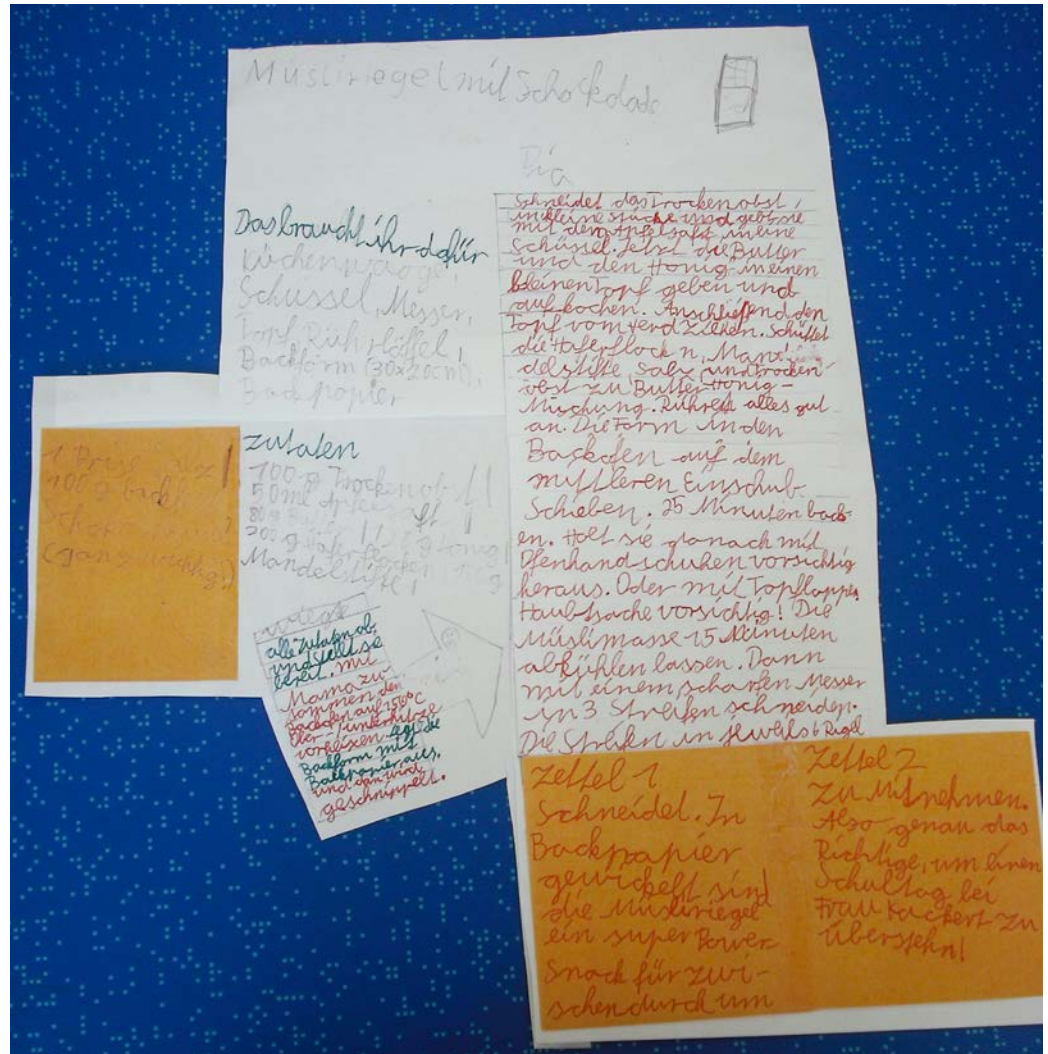 Müsliriegel mit Schockolade
Pia
Das braucht ihr dafür
Küchenwaage,
Schüssel, Messer,
Topf, Rührlöffel,
Backform (30x20cm),
Backpapier
zutaten
100 g Trockenobst!
50ml Apfelsaft!
80g Butter!
200 g Haferflocken
Mandelstifte!
1 Prise Salz!
100 g back
(ganz wichtig!)
wiegt
alle zutatn ab
und stellt se
bereit. mit
Mama zu
sammen den
Backofen auf 150°C
Ober-/unterhitze
vorheixen. legt die
Backform mit
Backpapier aus,
und dan wird
geschnippelt.
Schneidet das Trockenobst
in kleine stücke und gebt sie
mit dem Apfelsaft in eine
Schüssel. Jetzt die Butter
und den Honig in einen
kleinen Topf geben und
aufkochen. Anschließend den
Topf vom Herd ziehen. Schüttet
die Haferflock n, Man
delstifte Salz und trocken
obst zu Butter-Honig-
Mischung. Rühret alles gut
an. Die Form in den
Backofen auf dem
mittleren Einschub
Schieben. 25 Minuten back-
en. Holt sie danach mit
Ofenhandschuhen vorsichtig
heraus. Oder mit Topflappen
Haubtsache vorsichtig! Die
Müslimasse 15 Minuten
abkühlen lassen. Dann
mit einem scharfen Messer
in 3 Streifen schneiden.
Die Streifen in jeweils 6 Rigel
Zettel 1
Schneidet. In
Backpapier
gewickelt sind
die Müsliriegel
ein super Power
Snack für zwi-
schendurch um
Zettel 2
Zu Mitnehmen.
Also genau das
Richtige, um einen
Schultag bei
Frau Kackert zu
überstehn!